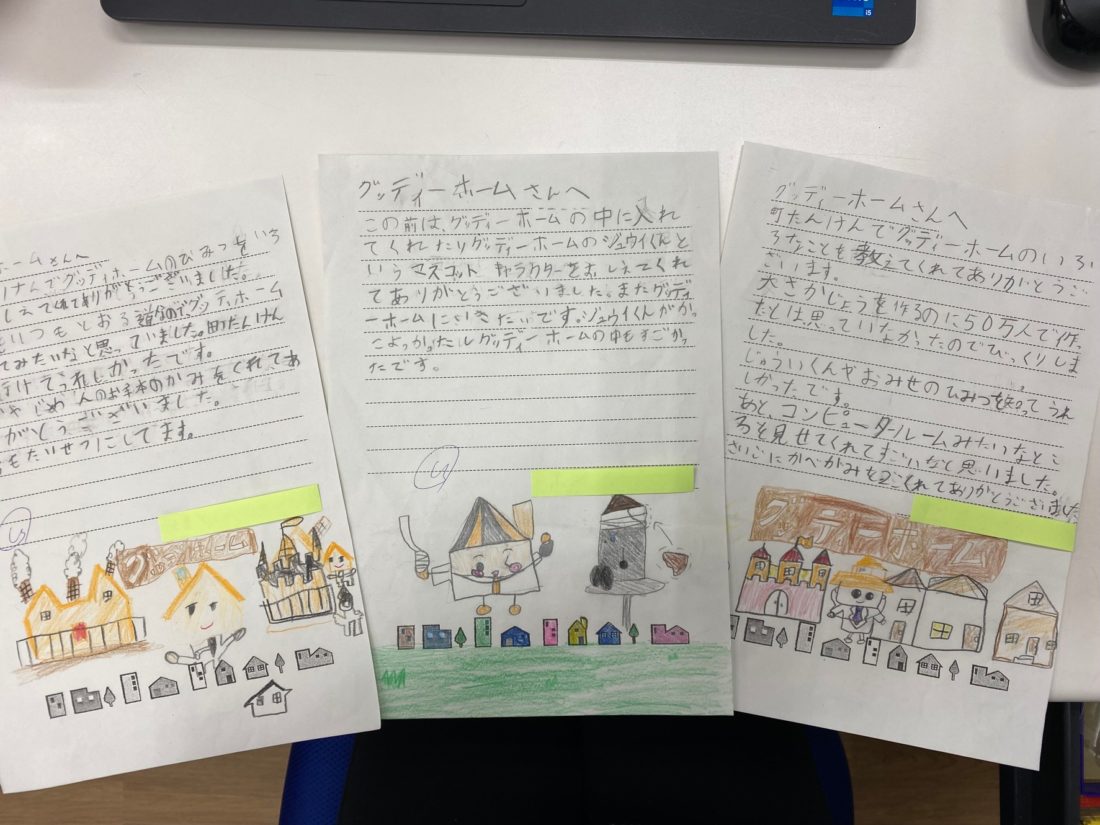 ホームさんへ
けんでグッディホームのひみつをいろ
しえてくれてありがとうございました。
いつもとおる グッディホーム
てみたいなと思っていました。町たんけん
行けてうれしかったです。
人のお手本のかみをくれて、あ
がとうございました。
もたいせつにしてます。
グッディーホーム
グッディーホームさんへ
この前は、グッディーホームの中に入れ
てくれたりグッディーホームのジュウイくんと
いうマスコット キャラクターをおしえてくれ
てありがとうございました。またグッディ
ーホームにいきたいです。ジュウイくんがかっ
こよかったしグッディーホームの中もすごかっ
たです。
グッディーホームさんへ
町たんけんでグッディーホームのいろい
ろなことを教えてくれてありがとうご
ざいます。
大さかじょうを作るのに50万人で作
たとは思っていなかったのでびっくりしま
した。
じゅういくんやおみせのひみつを知ってうれ
しかったです。
あと、コンピュータールームみたいなとこ
ろを見せてくれてすごいなと思いました。
さいごにかべがみをくれてありがとうございました
グッディーホーム
i5